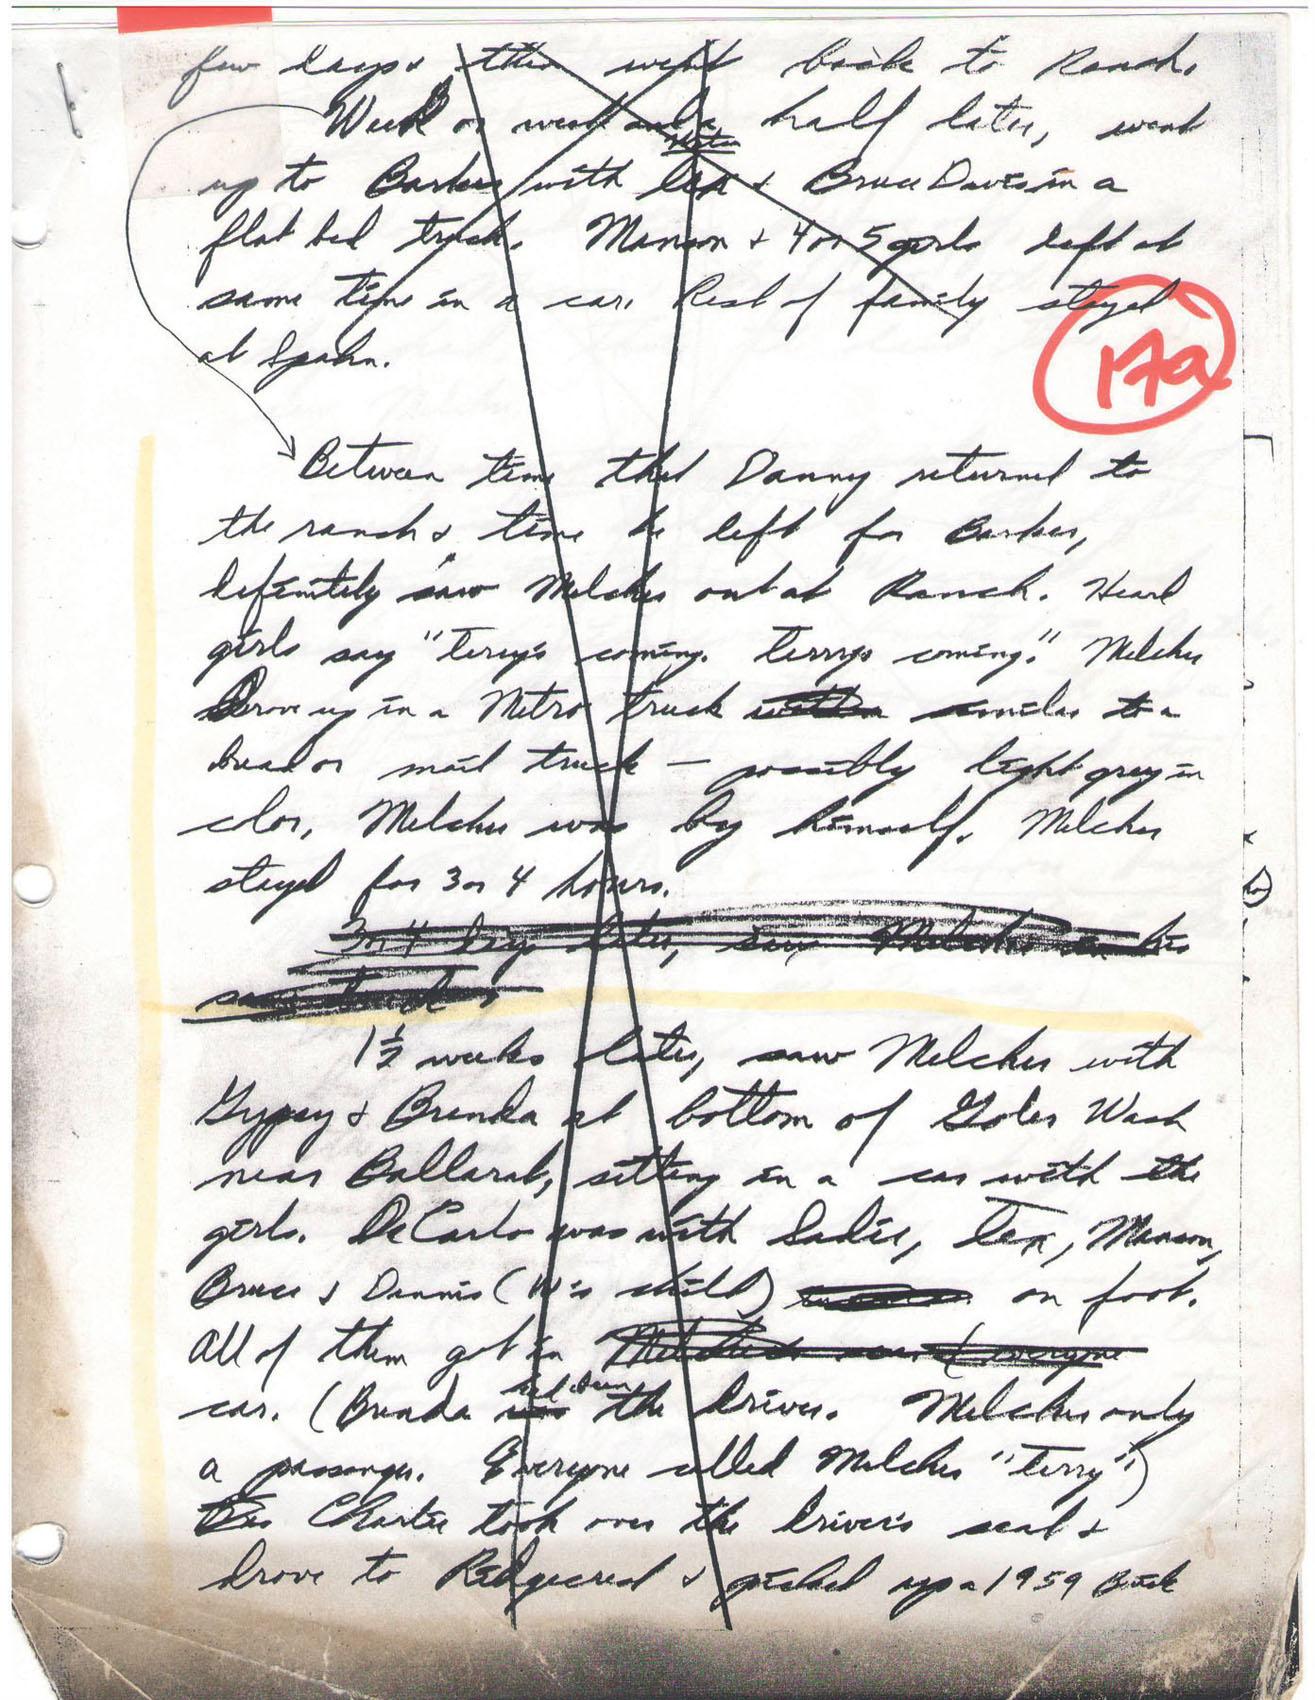 few days & then went back to Ranch.
Week or week and a half later, went
up to Barker with Tex & Bruce Davis in a
flat bed truck. Manson & 4 or 5 girls left at
same time in a car. Rest of family stayed
at Spahn.
17a
Between time that Danny returned to
the ranch & time he left for Barker,
definitely saw Melcher out at Ranch. Heard
girls say "Terry's coming. Terry's coming." Melcher
Drove up in a Metro truck similar to a
bread or mail truck — possibly light grey in
color. Melcher was by himself. Melcher
stayed for 3 or 4 hours.
3 or 4 days later, saw Melcher in his
same truck.
1½ weeks later, saw Melcher with
Gypsy & Brenda at bottom of Golar Wash
near Ballarat, sitting in a car with the
girls. DeCarlo was with Sadie, Tex, Manson,
Bruce & Dennis ( child) on foot.
All of them got in Melcher's car & everyone
car. (Brenda had been the driver. Melcher only
a passenger. Everyone called Melcher "Terry".)
Charlie took over the driver's seat &
drove to Ridgecrest & picked up a 1959 Buick